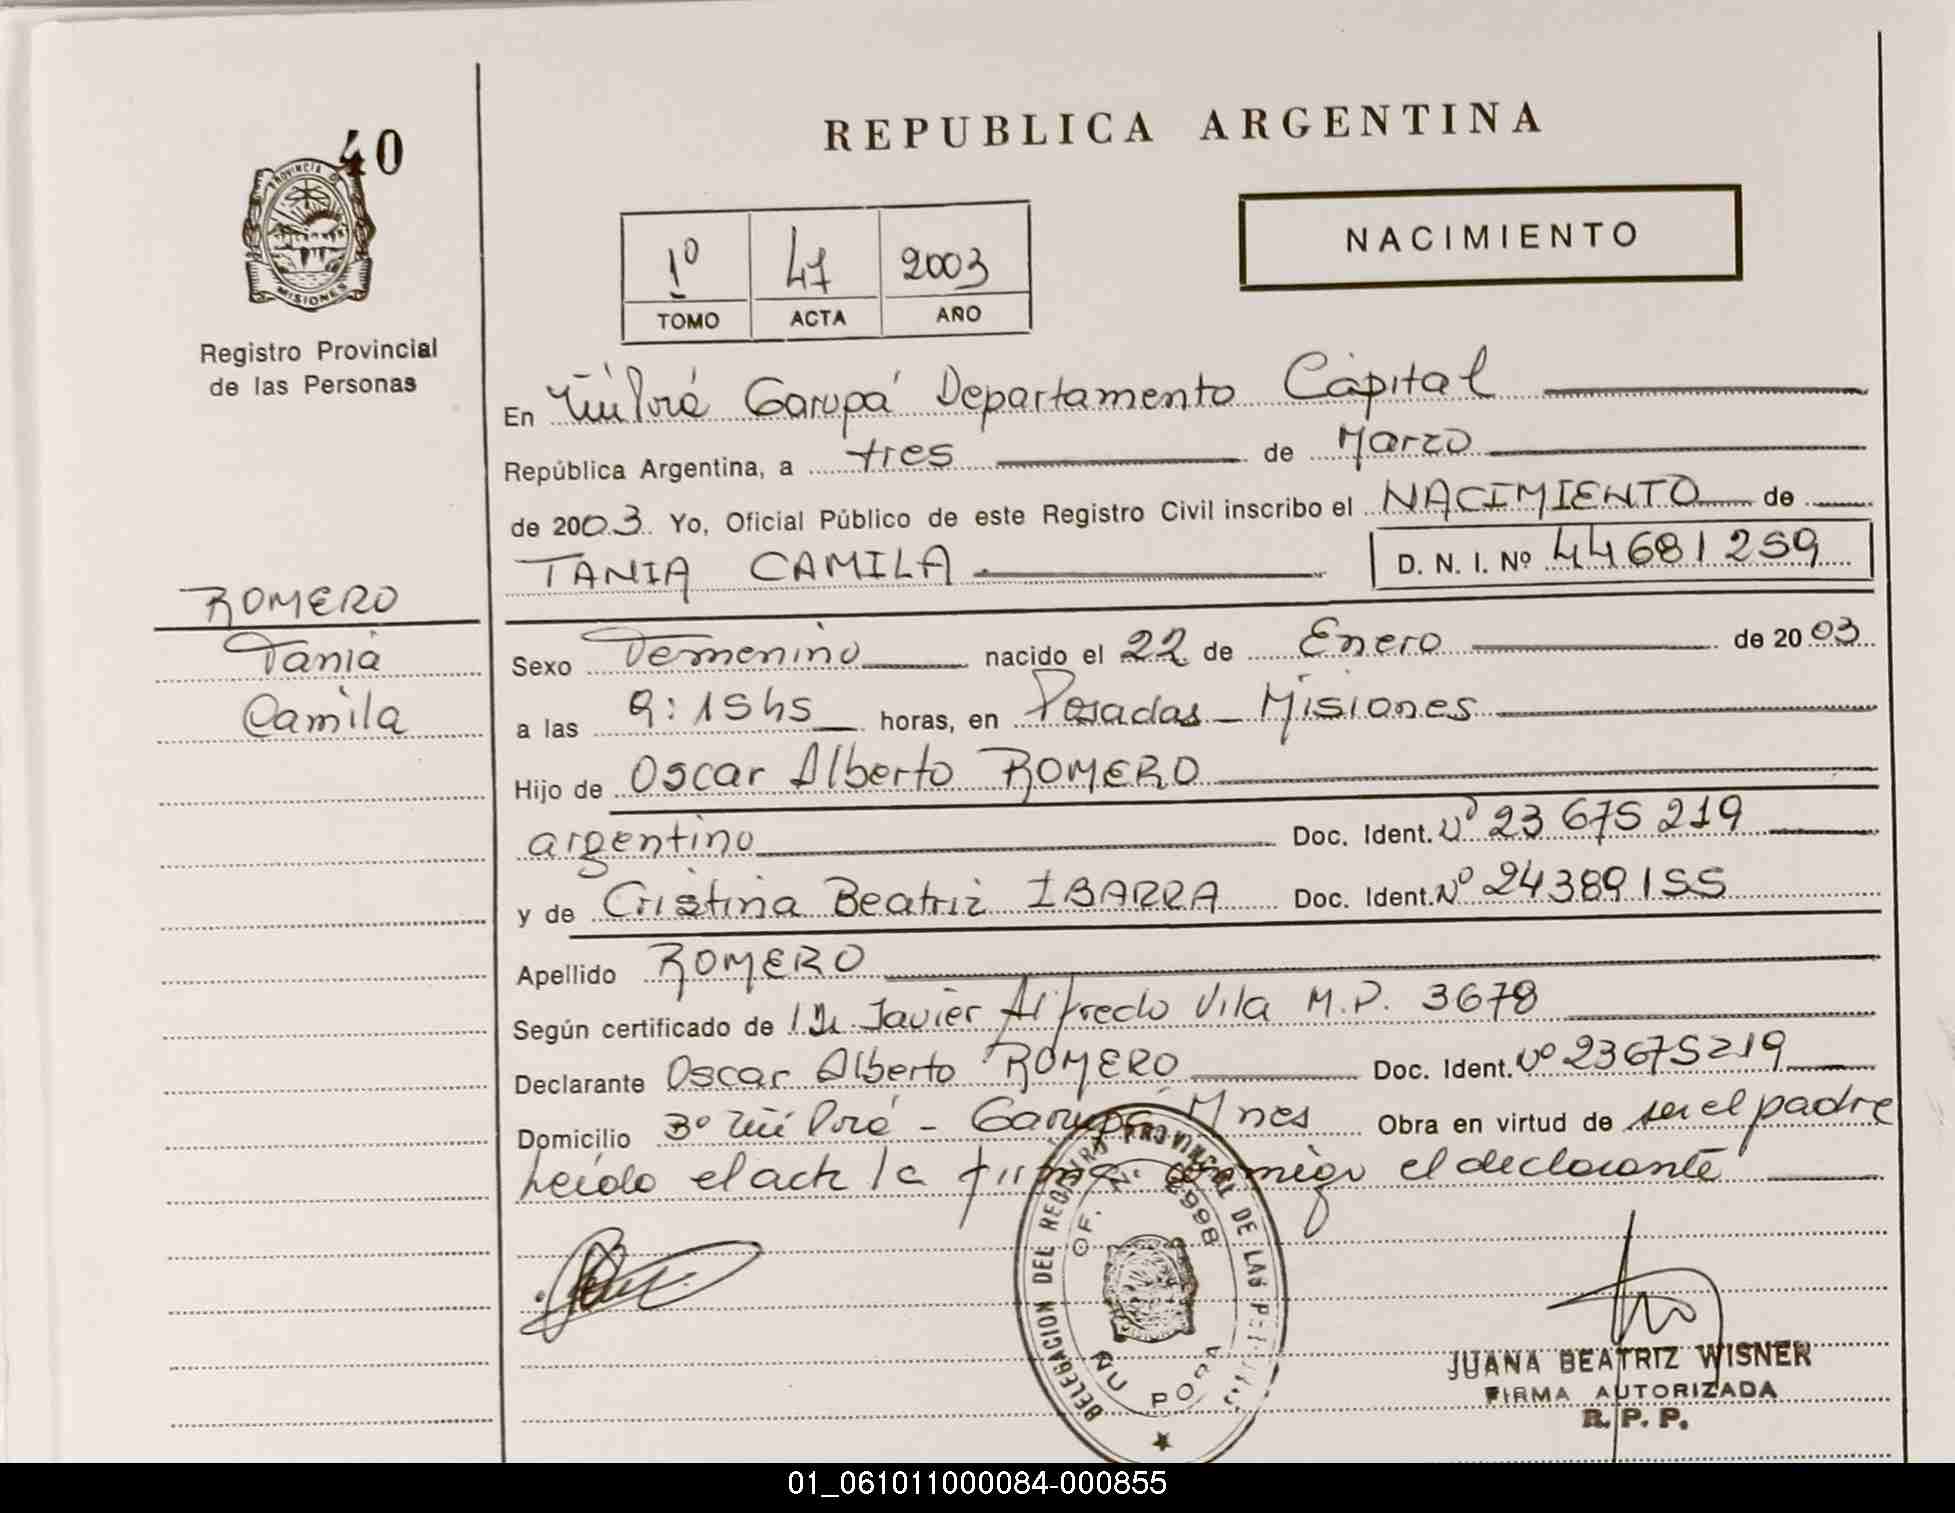 40
PROVINCIA DE
MISIONES
Registro Provincial
de las Personas
REPUBLICA ARGENTINA
1º 47 2003
TOMO ACTA AÑO
NACIMIENTO
En Ñu Porá Garupá Departamento Capital
República Argentina, a tres de Marzo
de 2003. Yo, Oficial Público de este Registro Civil inscribo el NACIMIENTO de
TANIA CAMILA D. N. I. Nº 44681259
ROMERO
Tania
Camila
Sexo Femenino nacido el 22 de Enero de 2003
a las 9:15hs horas, en Posadas - Misiones
Hijo de Oscar Alberto ROMERO
argentino Doc. Ident. Nº 23 675 219
y de Cristina Beatriz IBARRA Doc. Ident. Nº 24389155
Apellido ROMERO
Según certificado de Javier Alfredo Vila M.P. 3678
Declarante Oscar Alberto ROMERO Doc. Ident. Nº 23675219
Domicilio Bº Ñu Porá - Garupá Mnes Obra en virtud de ser el padre
Leído el acta la firma conmigo el declarante
DELEGACION DEL REGISTRO PROVINCIAL DE LAS PERSONAS
OF. Nº 2998
ÑU PORA
JUANA BEATRIZ WISNER
FIRMA AUTORIZADA
R. P. P.
01_061011000084-000855